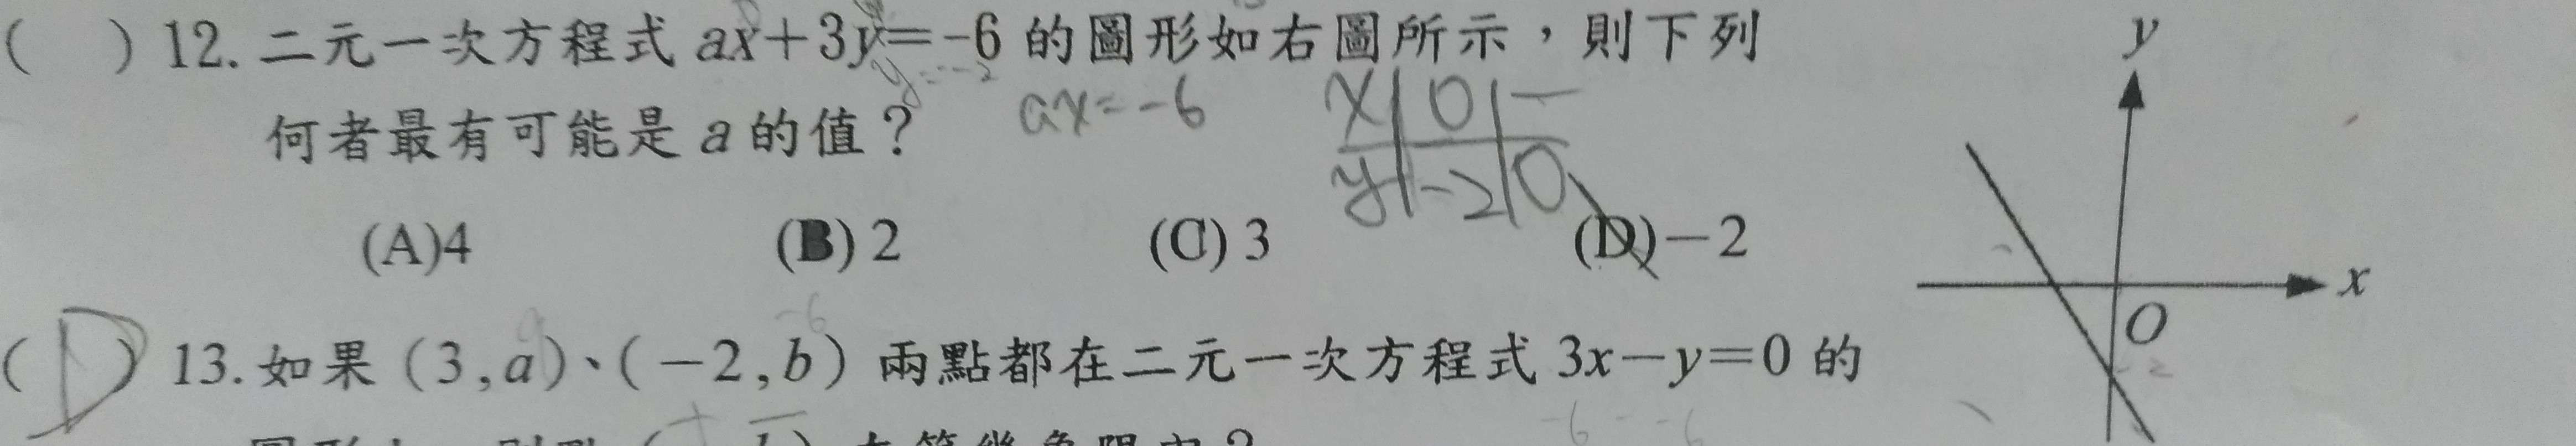 ( ) 12. 二元一次方程式 ax+3y=-6 的圖形如右圖所示，則下列
y=-2
何者最有可能是 a 的值？
ax=-6
x 0 -
y -2 0
(A)4 (B) 2 (C) 3 (D)-2
y
x
O
-2
-6
(D) 13. 如果 (3,a)、(-2,b) 兩點都在二元一次方程式 3x-y=0 的